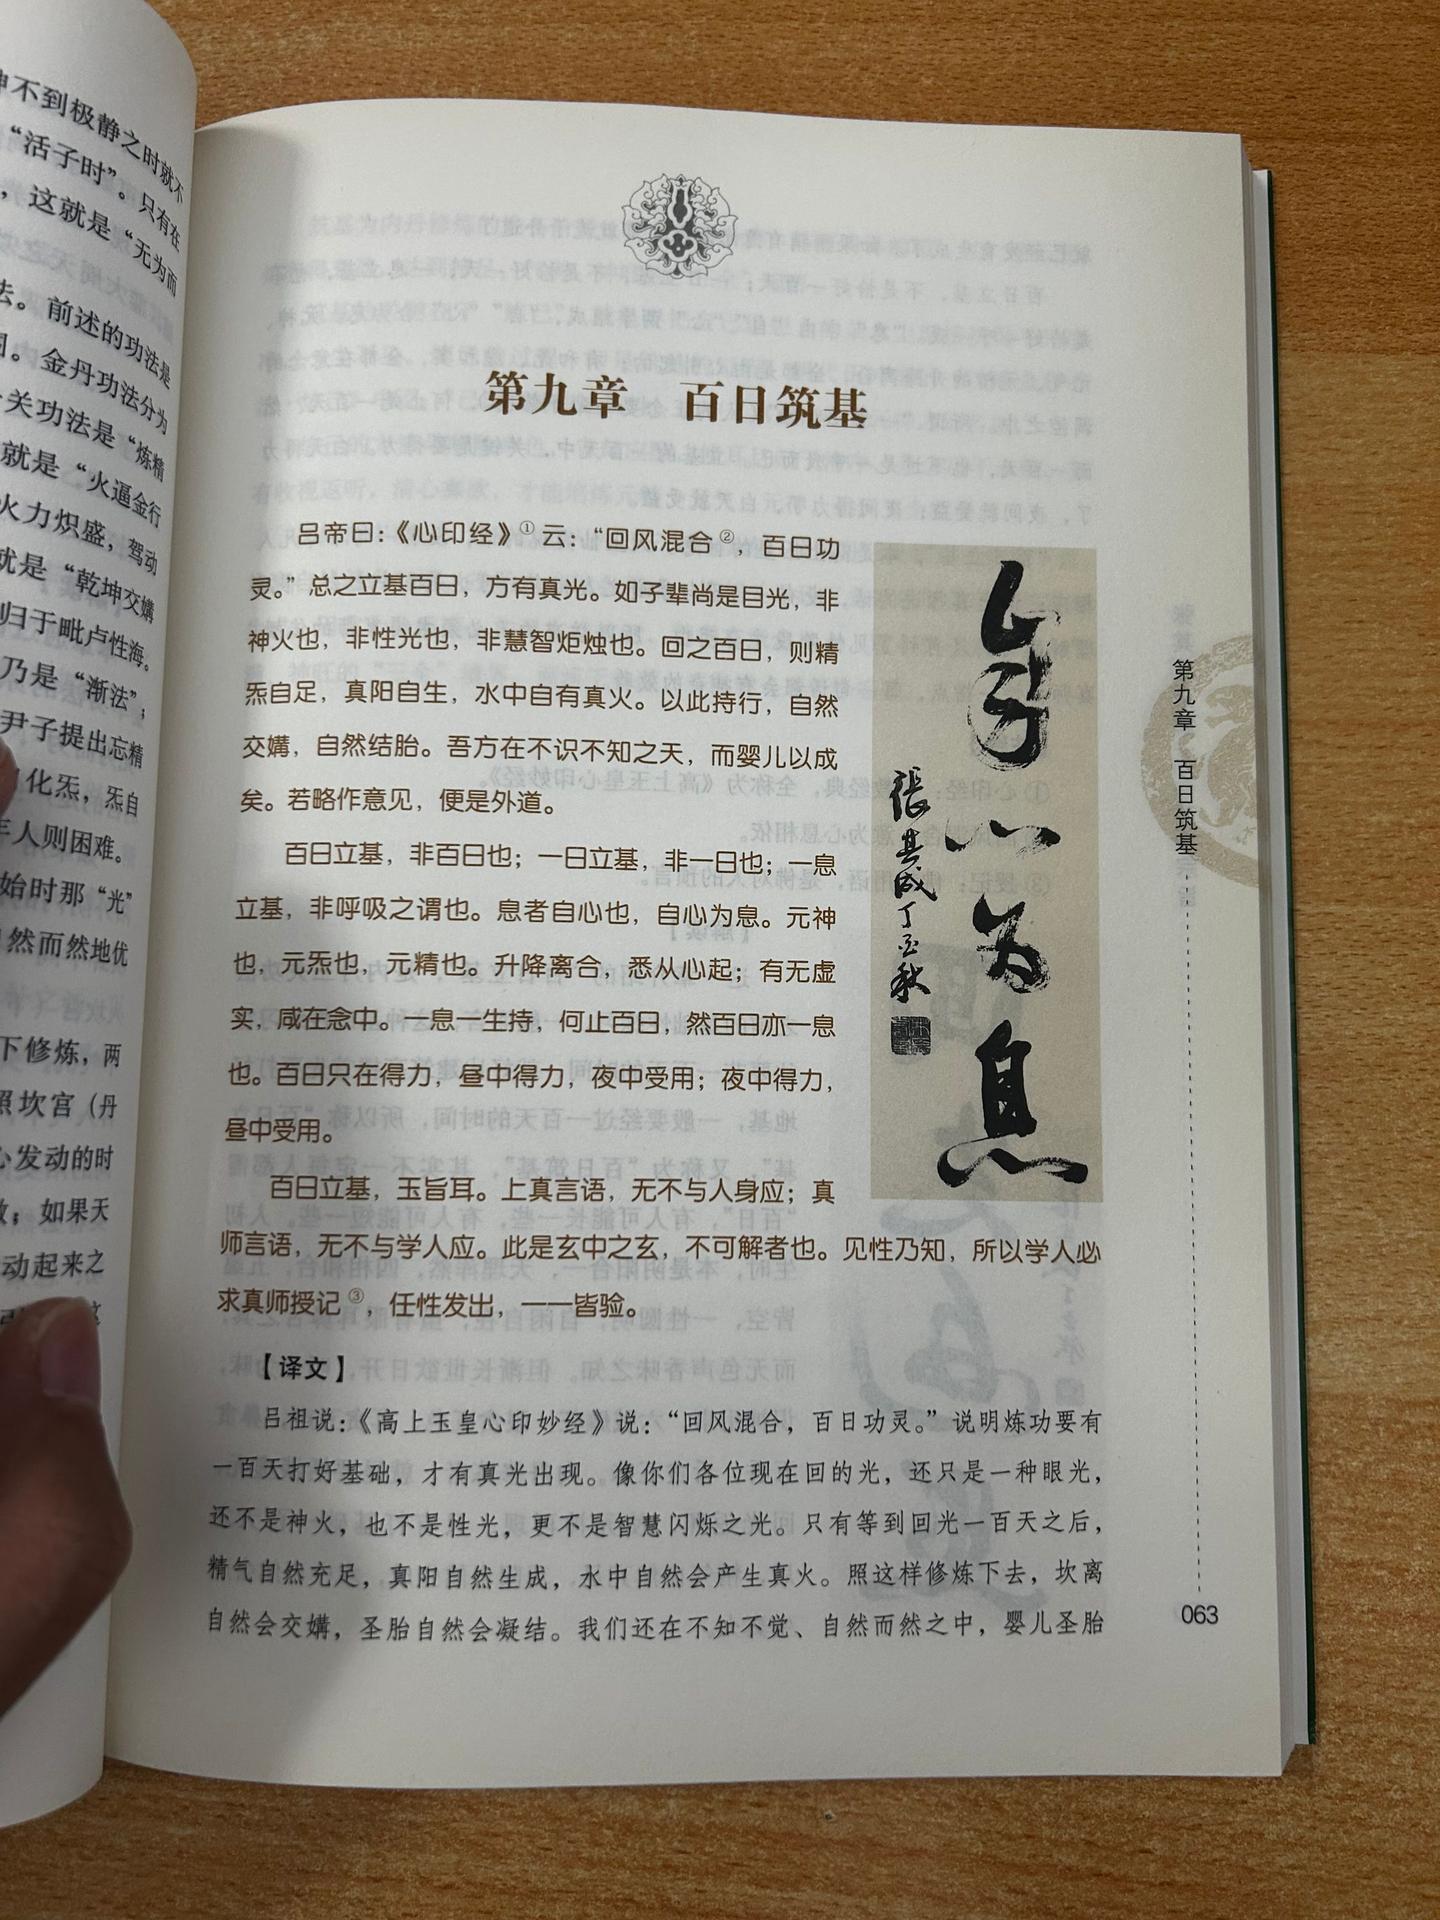 神不到极静之时就不
“活子时”。只有在
，这就是“无为而
法。前述的功法是
。金丹功法分为
关功法是“炼精
就是“火逼金行
火力炽盛，驾动
就是“乾坤交媾
归于毗卢性海。
乃是“渐法”；
尹子提出忘精
化炁，炁自
年人则困难。
始时那“光”
自然而然地优
下修炼，两
照坎宫（丹
心发动的时
；如果天
动起来之
第九章 百日筑基
吕帝曰：《心印经》①云：“回风混合②，百日功
灵。”总之立基百日，方有真光。如子辈尚是目光，非
神火也，非性光也，非慧智炬烛也。回之百日，则精
炁自足，真阳自生，水中自有真火。以此持行，自然
交媾，自然结胎。吾方在不识不知之天，而婴儿以成
矣。若略作意见，便是外道。
百日立基，非百日也；一日立基，非一日也；一息
立基，非呼吸之谓也。息者自心也，自心为息。元神
也，元炁也，元精也。升降离合，悉从心起；有无虚
实，咸在念中。一息一生持，何止百日，然百日亦一息
也。百日只在得力，昼中得力，夜中受用；夜中得力，
昼中受用。
百日立基，玉旨耳。上真言语，无不与人身应；真
师言语，无不与学人应。此是玄中之玄，不可解者也。见性乃知，所以学人必
求真师授记③，任性发出，一一皆验。
【译文】
吕祖说：《高上玉皇心印妙经》说：“回风混合，百日功灵。”说明炼功要有
一百天打好基础，才有真光出现。像你们各位现在回的光，还只是一种眼光，
还不是神火，也不是性光，更不是智慧闪烁之光。只有等到回光一百天之后，
精气自然充足，真阳自然生成，水中自然会产生真火。照这样修炼下去，坎离
自然会交媾，圣胎自然会凝结。我们还在不知不觉、自然而然之中，婴儿圣胎
心为息
張其成丁亥秋
第九章 百日筑基
063